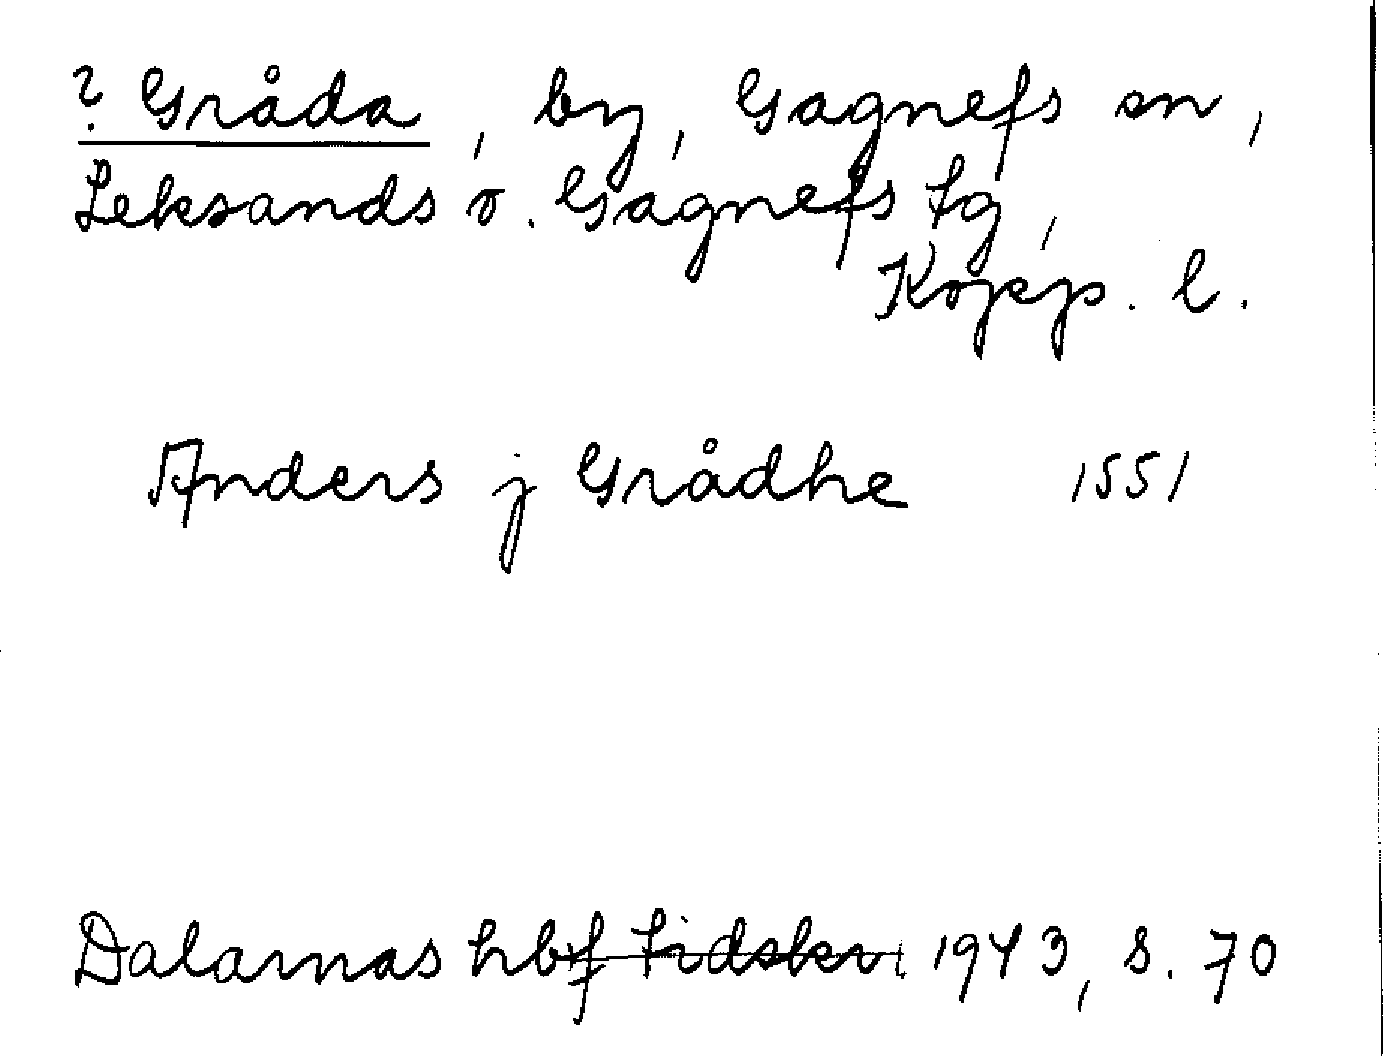 ? Gråda, by, Gagnefs sn,
Leksands o. Gagnefs tg,
Kopp. l.
Anders j Grådhe 1551
Dalarnas hbf tidskr. 1943, s. 70